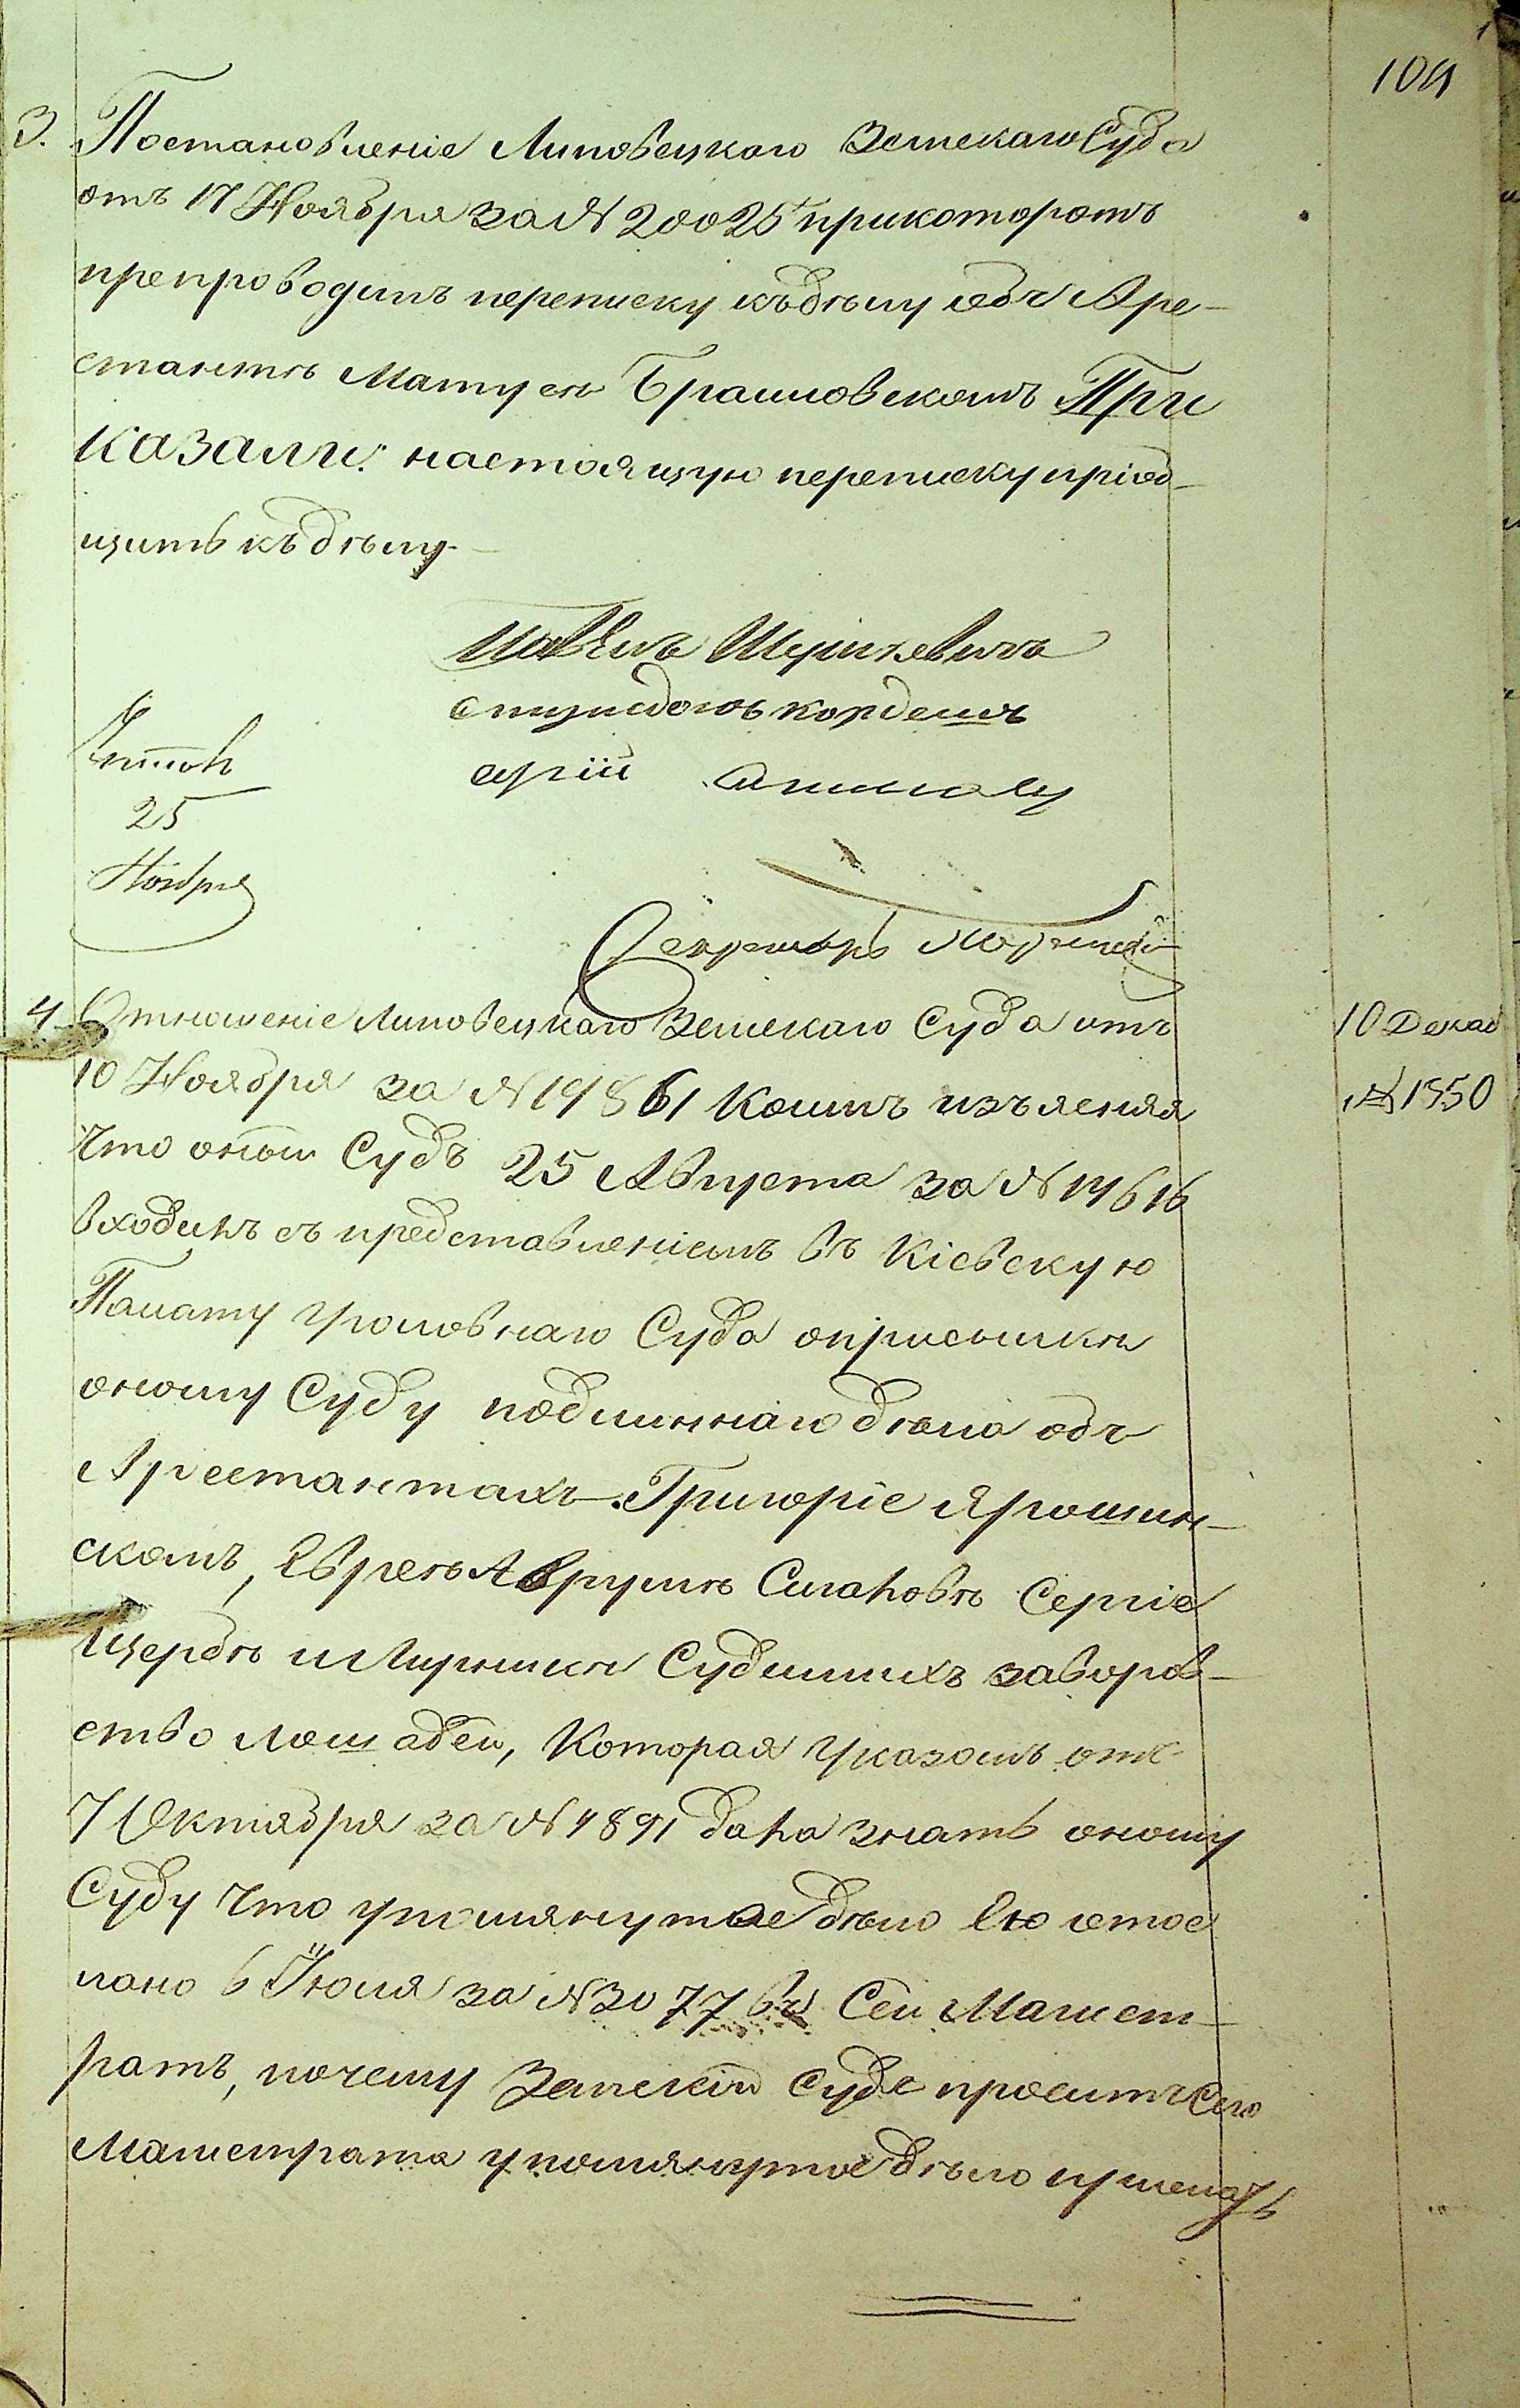 104
3. Постановленіе Липовецкаго Земскаго Суда
отъ 17 Ноября за № 20025 при которомъ
препроводитъ переписку къ дѣлу объ Аре-
стантѣ Матусѣ Браиловскомъ При
казали: настоящую переписку пріоб-
щить къ дѣлу.
Читов
25
Ноября
Секретарь
4. Отношеніе Липовецкаго Земскаго Суда отъ
10 Декаб
10 Ноября за № 19861 Коимъ изъясняя
№ 1850
что оный Судъ 25 Августа за № 14616
входилъ съ представленіемъ въ Кіевскую
Палату Уголовнаго Суда о присылкѣ
оному Суду подлиннаго дѣла объ
Арестантахъ Григоріе Ярошин-
скомъ, Евреѣ Аврумѣ Сигановѣ Сергіе
Щербѣ и Судимихъ за воров-
ство лошадей, Которая Указомъ отъ
7 Октября за № 4891 дала знать оному
Суду что упомянутое дѣло Ею отос
лано 6 Іюля за № 3077 въ Сей Магист-
ратъ, почему Земскій Судъ проситъ Сего
Магистрата упомянутое дѣло